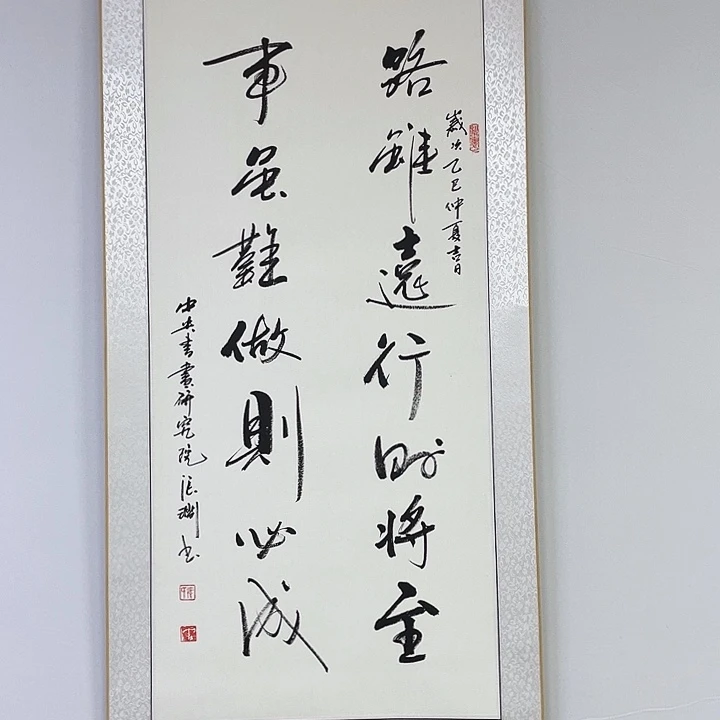 歲次乙巳仲夏吉日
路雖遠行則將至
事虽難做則必成
中央書畫研究院張书